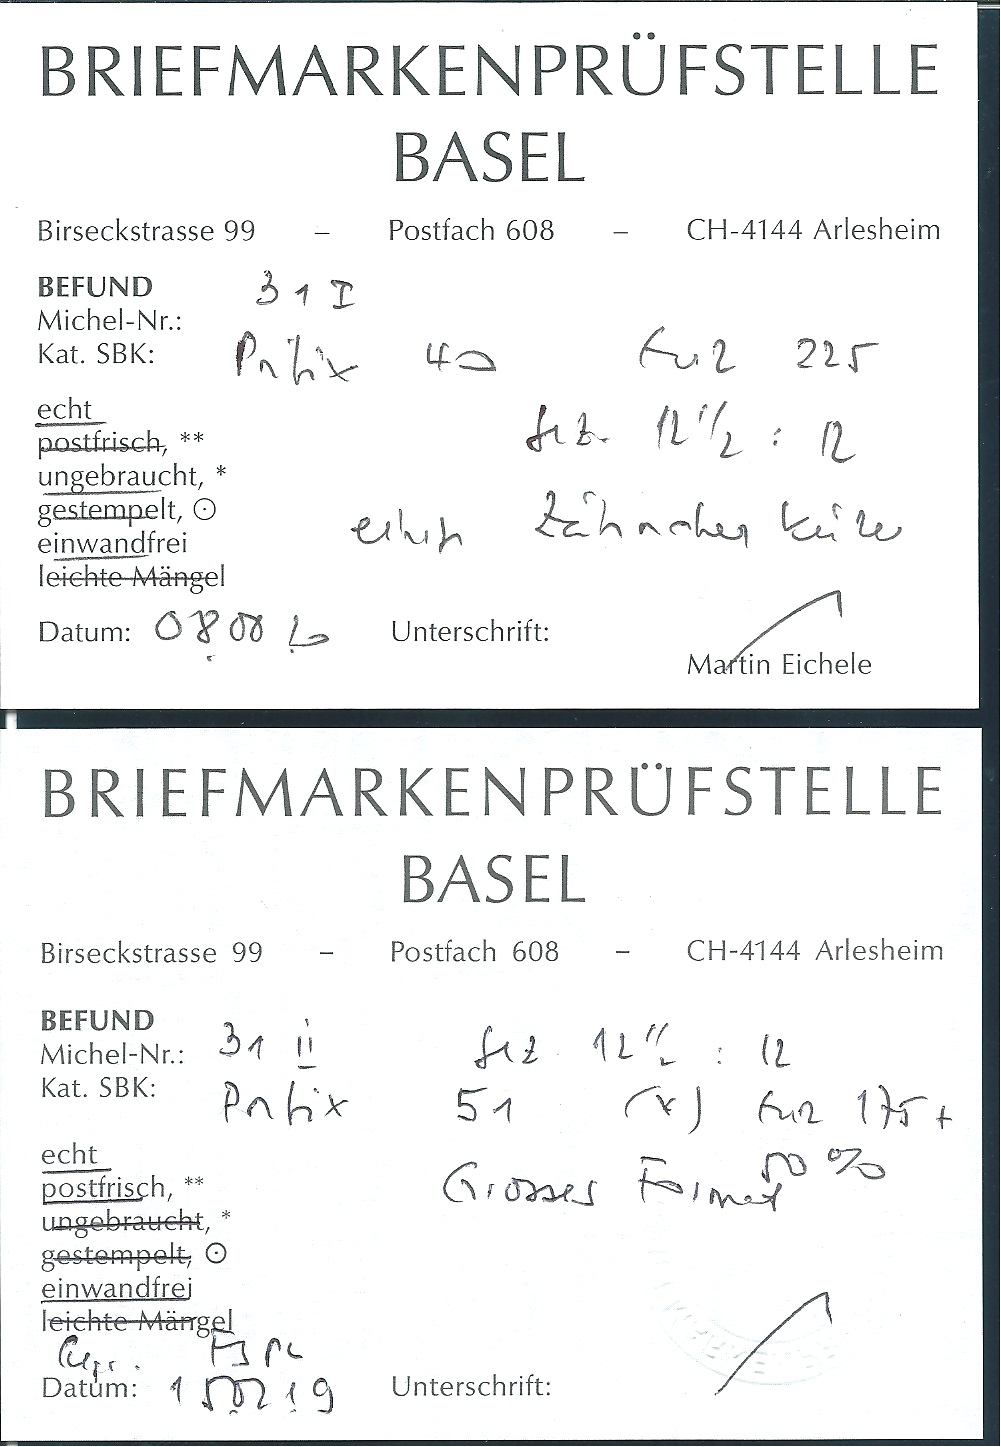 BRIEFMARKENPRÜFSTELLE
BASEL
Birseckstrasse 99 – Postfach 608 – CH-4144 Arlesheim
BEFUND
Michel-Nr.: 31 I
Kat. SBK: Pofix 40 Eur 225
echt
gez. 12 1/2 : 12
postfrisch, **
ungebraucht, *
gestempelt, ⊙
Zähnchen
einwandfrei
leichte Mängel
Datum: Unterschrift:
Martin Eichele
BRIEFMARKENPRÜFSTELLE
BASEL
Birseckstrasse 99 – Postfach 608 – CH-4144 Arlesheim
BEFUND
Michel-Nr.: 31 II gez 12 1/2 : 12
Kat. SBK: Pofix 51 (x) Eur 175 +
50 %
echt
Grosses Format
postfrisch, **
ungebraucht, *
gestempelt, ⊙
einwandfrei
leichte Mängel
Datum: Unterschrift: